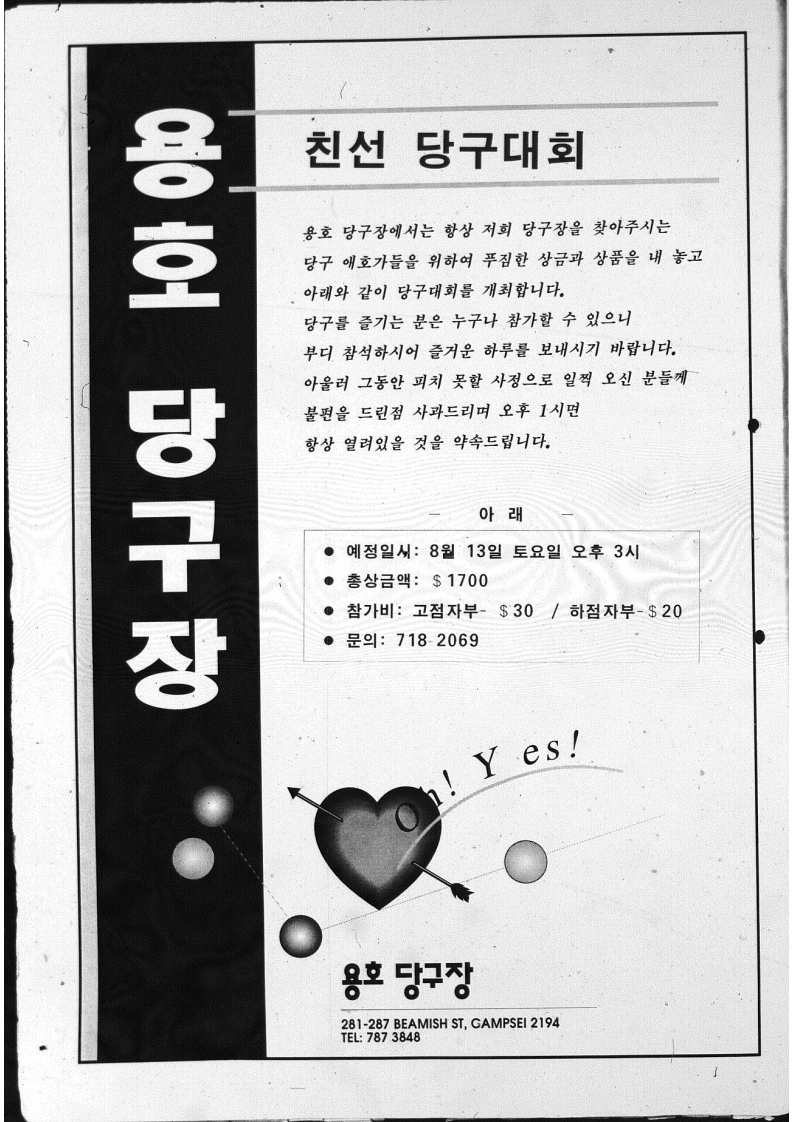 용호 당구장
친선 당구대회
용호 당구장에서는 항상 저희 당구장을 찾아주시는
당구 애호가들을 위하여 푸짐한 상금과 상품을 내 놓고
아래와 같이 당구대회를 개최합니다.
당구를 즐기는 분은 누구나 참가할 수 있으니
부디 참석하시어 즐거운 하루를 보내시기 바랍니다.
아울러 그동안 피치 못할 사정으로 일찍 오신 분들께
불편을 드린점 사과드리며 오후 1시면
항상 열려있을 것을 약속드립니다.
— 아 래 —
● 예정일시: 8월 13일 토요일 오후 3시
● 총상금액: $1700
● 참가비: 고점자부- $30 / 하점자부-$20
● 문의: 718-2069
Oh! Yes!
용호 당구장
281-287 BEAMISH ST, GAMPSEI 2194
TEL: 787 3848